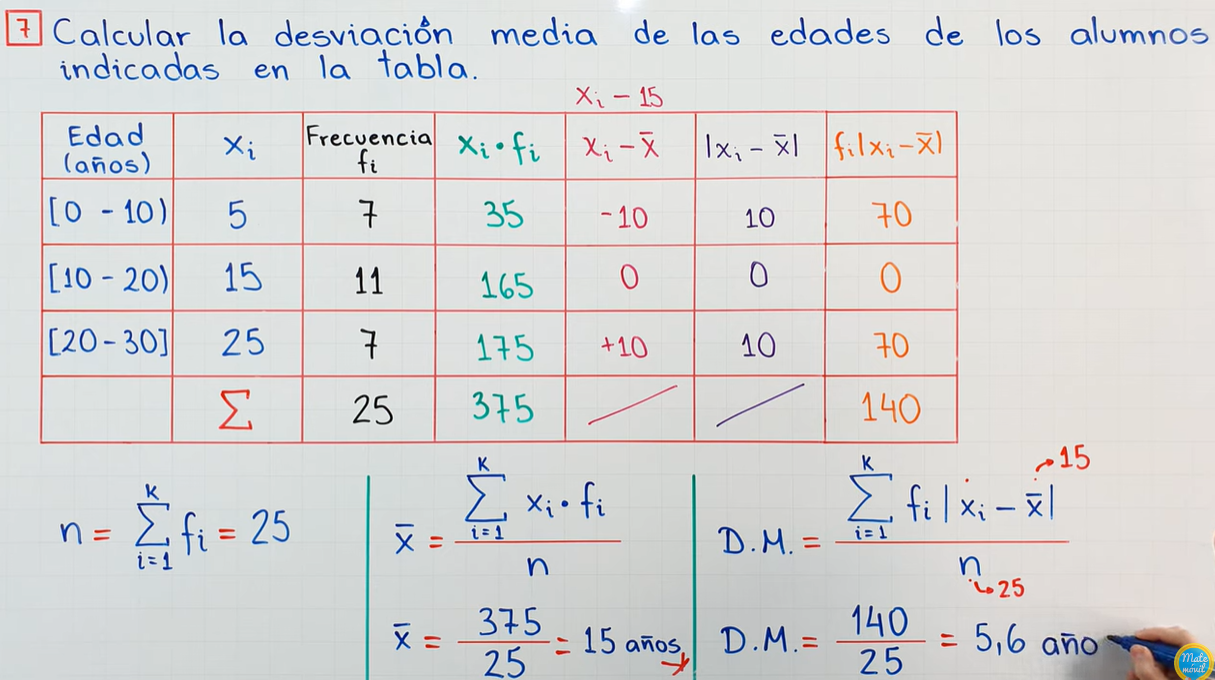 7 Calcular la desviación media de las edades de los alumnos
indicadas en la tabla.
xᵢ − 15
Edad (años) xᵢ Frecuencia fᵢ xᵢ • fᵢ xᵢ − x̄ |xᵢ − x̄| fᵢ|xᵢ − x̄|
[0 - 10) 5 7 35 -10 10 70
[10 - 20) 15 11 165 0 0 0
[20 - 30] 25 7 175 +10 10 70
Σ 25 375 140
n = Σ k i=1 fᵢ = 25
x̄ = Σ k i=1 xᵢ • fᵢ / n
D.M. = Σ k i=1 fᵢ |xᵢ − x̄| / n
15
25
x̄ = 375/25 = 15 años
D.M. = 140/25 = 5,6 año
Mate móvil